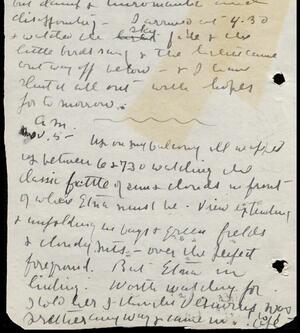 but damp & unromantic and
disappointing - I arrived at 4.30
& watched the sky fade & the
little birds sing & the lights came
out way off below - & I have
shut it all out with hopes
for tomorrow.
a.m.
Nov. 5 - Up on my balcony all wrapped
up between 6 & 7.30 watching the
classic battle of sun & clouds in front
of where Etna must be. View extending
& unfolding in bays & green fields
& cloudy - over the perfect
foreground. But Etna in
hiding. Worth watching for
I told her I think was
rather any way & came in